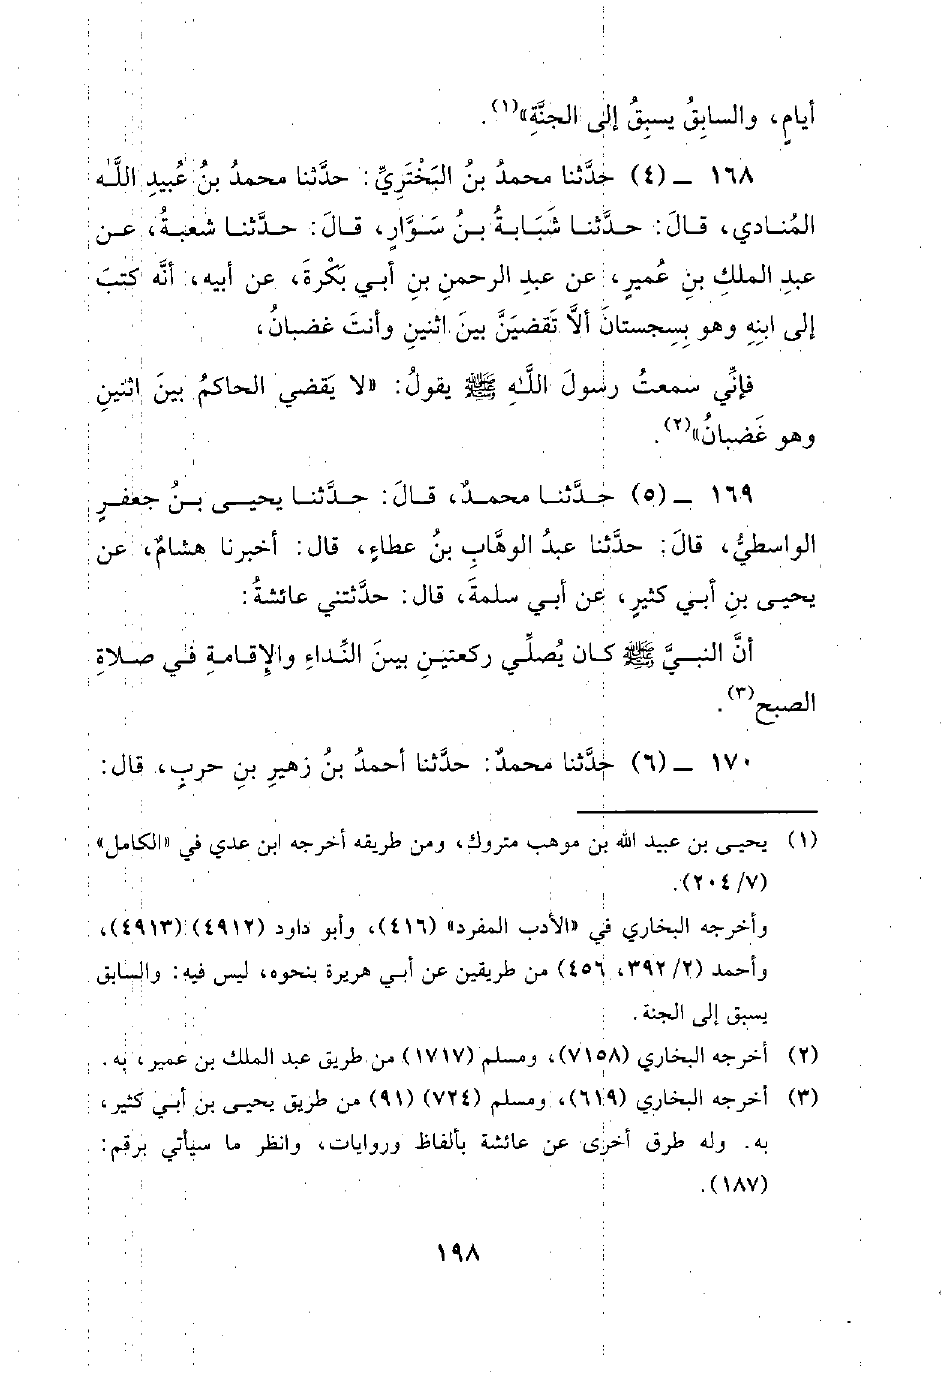 أيامٍ، والسابِقُ يسبِقُ إلى الجنَّةِ»(١).
١٦٨ ــ (٤) حدَّثنا محمدُ بنُ البَخْتَرِيِّ: حدَّثنا محمدُ بنُ عُبيدِ اللَّه
المُنادي، قالَ: حدَّثنا شَبَابةُ بنُ سَوَّارٍ، قالَ: حدَّثنا شعبةُ، عن
عبدِ الملكِ بنِ عُميرٍ، عن عبدِ الرحمنِ بنِ أبي بَكْرةَ، عن أبيه، أنَّه كتبَ
إلى ابنِهِ وهو بسِجِستانَ ألاَّ تَقضيَنَّ بينَ اثنينِ وأنتَ غضبانُ،
فإنِّي سمعتُ رسولَ اللَّهِ ﷺ يقولُ: «لا يَقضي الحاكمُ بينَ اثنينِ
وهو غَضبانُ»(٢).
١٦٩ ــ (٥) حدَّثنا محمدٌ، قالَ: حدَّثنا يحيى بنُ جعفرٍ
الواسطيُّ، قالَ: حدَّثنا عبدُ الوهَّابِ بنُ عطاءٍ، قال: أخبرنا هشامٌ، عن
يحيى بنِ أبي كثيرٍ، عن أبي سلمةَ، قال: حدَّثتني عائشةُ:
أنَّ النبيَّ ﷺ كان يُصلِّي ركعتينِ بينَ النِّداءِ والإقامةِ في صلاةِ
الصبحِ(٣).
١٧٠ ــ (٦) حدَّثنا محمدٌ: حدَّثنا أحمدُ بنُ زهيرِ بنِ حربٍ، قال:
(١) يحيى بن عبيد الله بن موهب متروك، ومن طريقه أخرجه ابن عدي في «الكامل»
(٧/ ٢٠٤).
وأخرجه البخاري في «الأدب المفرد» (٤١٦)، وأبو داود (٤٩١٢) (٤٩١٣)،
وأحمد (٢/ ٣٩٢، ٤٥٦) من طريقين عن أبي هريرة بنحوه، ليس فيه: والسابق
يسبق إلى الجنة.
(٢) أخرجه البخاري (٧١٥٨)، ومسلم (١٧١٧) من طريق عبد الملك بن عمير، به.
(٣) أخرجه البخاري (٦١٩)، ومسلم (٧٢٤) (٩١) من طريق يحيى بن أبي كثير،
به. وله طرق أخرى عن عائشة بألفاظ وروايات، وانظر ما سيأتي برقم:
(١٨٧).
١٩٨